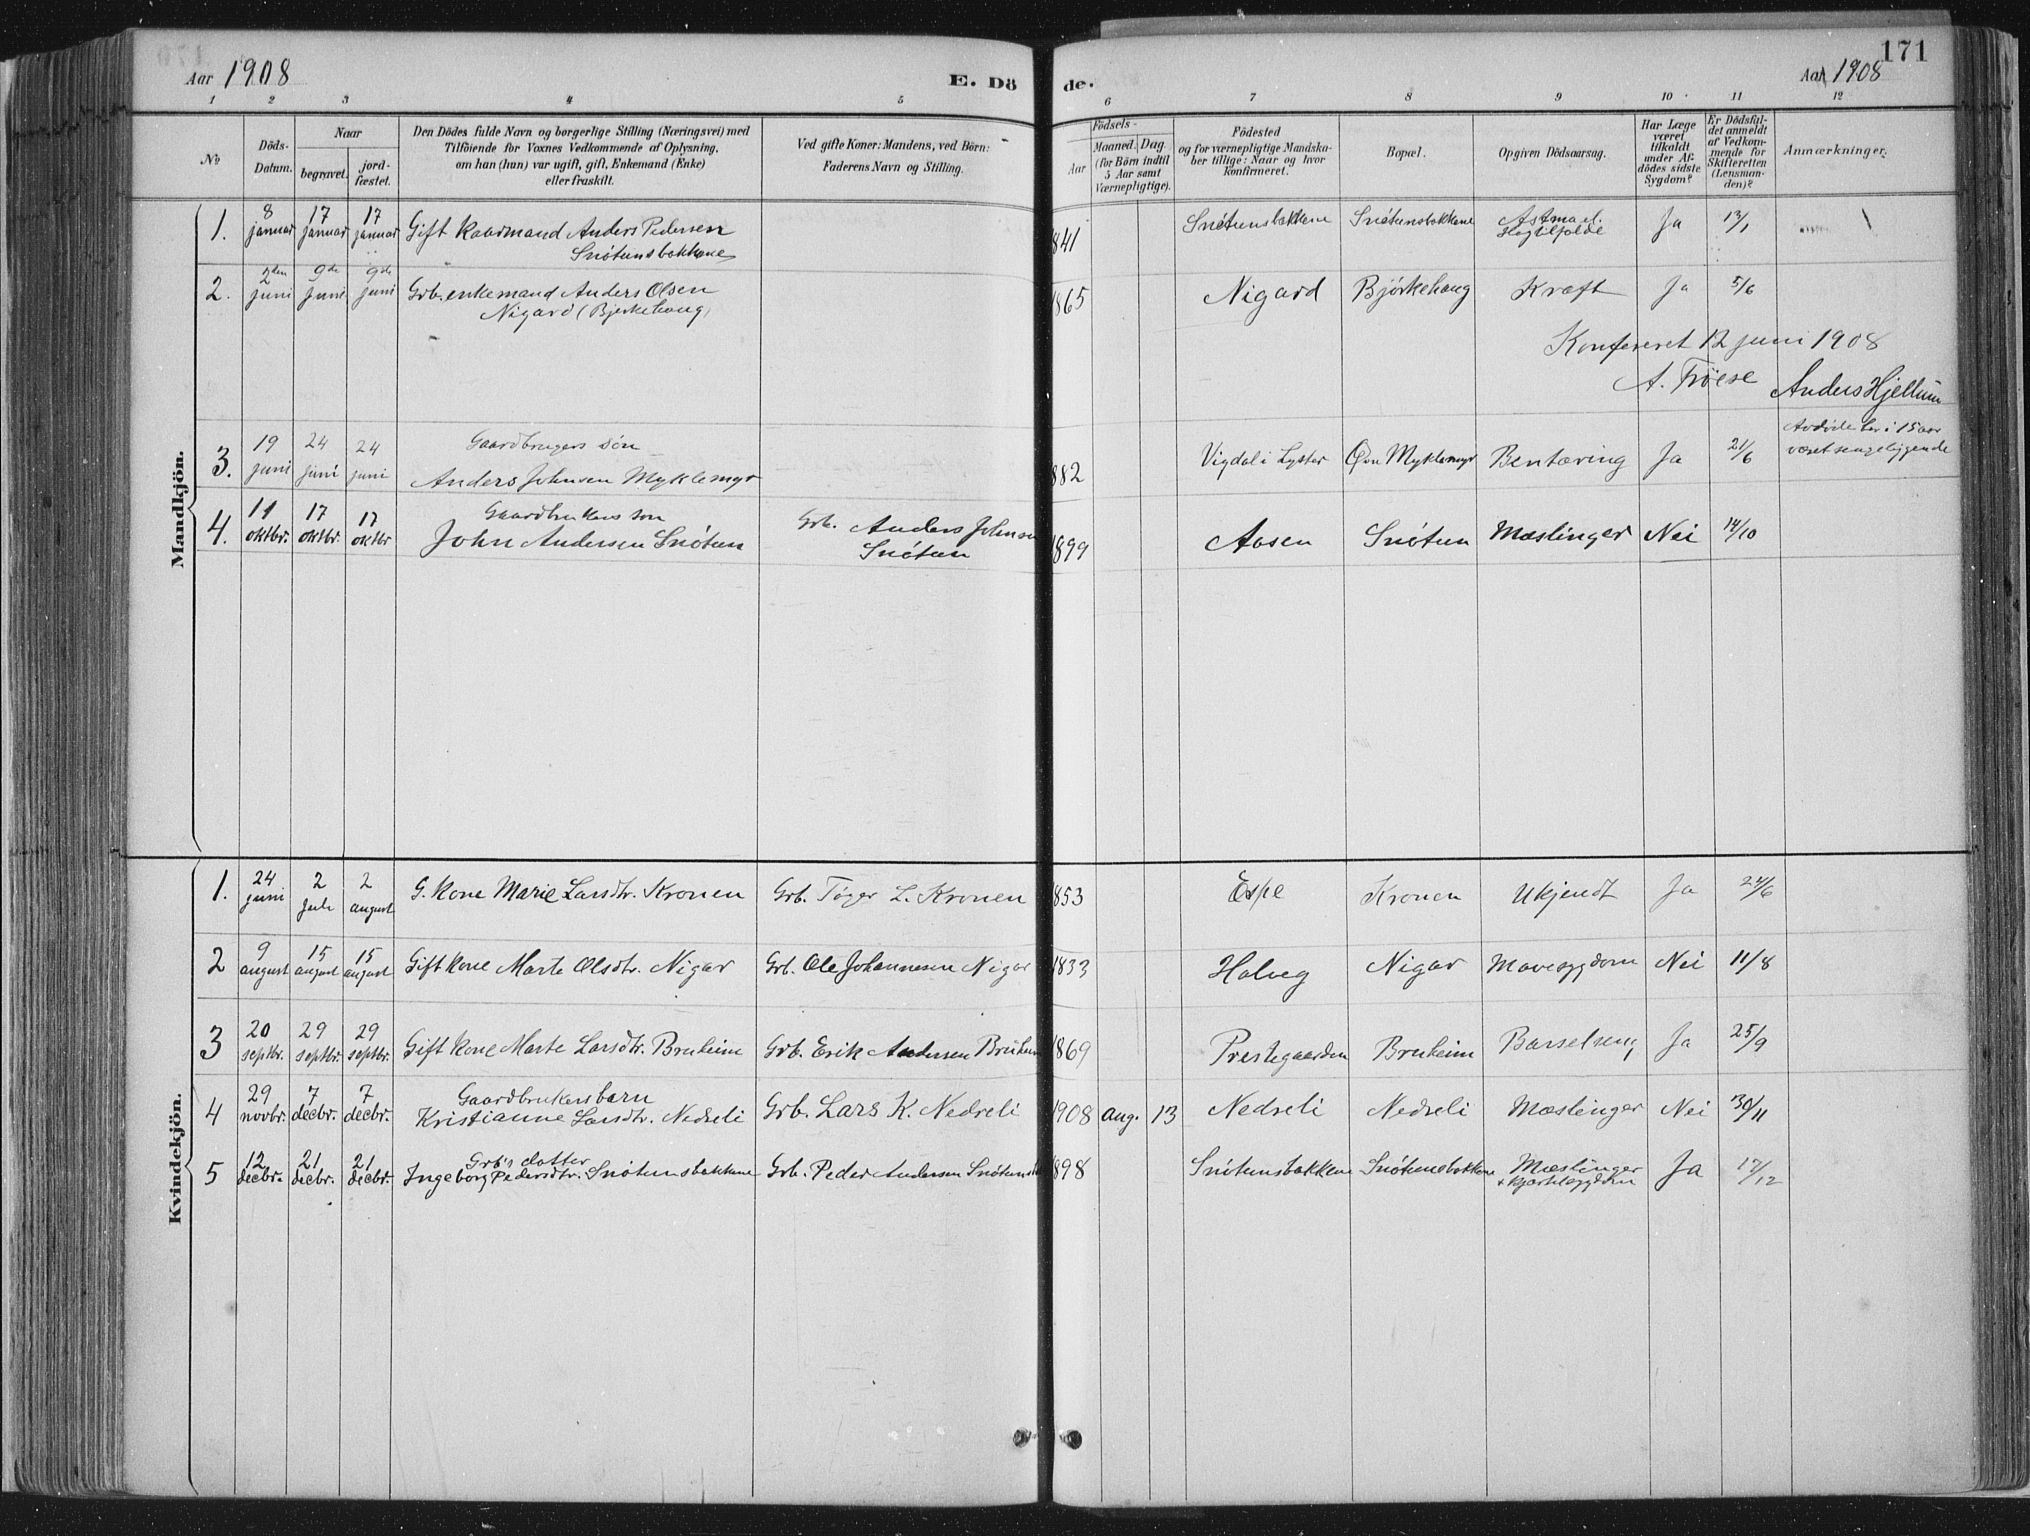 171
Aar 1908
E. Dö
de.
Aar 1908
1 2 3 4 5 6 7 8 9 10 11 12
№
Döds-
Datum.
Naar
begravet.
jord-
fæstet.
Den Dödes fulde Navn og borgerlige Stilling (Næringsvei) med
Tilföiende for Voxnes Vedkommende af Oplysning,
om han (hun) var ugift, gift, Enkemand (Enke)
eller fraskilt.
Ved gifte Koner: Mandens, ved Börn:
Faderens Navn og Stilling.
Födsels-
Aar
Maaned. Dag
(for Börn indtil
5 Aar samt
Værnepligtige).
Födested
og for værnepligtige Mandska-
ber tillige: Naar og hvor
konfirmeret.
Bopæl.
Opgiven Dödsaarsag.
Har Læge
været
tilkaldt
under Af-
dödes sidste
Sygdom?
Er Dödsfal-
det anmeldt
af Vedkom-
mende for
Skifteretten
(Lensman-
den)?
Anmærkninger.
Mandkjön.
1. 8 januar 17 januar 17 januar Gift Kaarmand Anders Pedersen
Snötunsbakkene
841 Snötunsbakkene Snötunsbakkene Astma Ja 13/1
2. 2den juni 9de juni 9de juni Grb. enkemand Anders Olsen
Nigard (Bjerkehaug)
1865 Nigard Björkehaug Kræft Ja 5/6
Konfereret 12 juni 1908
A. Tröese Anders Hjellum
3. 19 juni 24 juni 24 juni Gaardbrugers sön
Anders Johnsen Myklemyr
882 Vigdal i Lyster Øvr Myklemyr Bentæring Ja 21/6 Avdøde har i 15 aar
været sengeliggende
4. 11 oktbr. 17 oktbr. 17 oktbr Gaardbrukers son
John Andersen Snötun
Grb. Anders Johnsen
Snötun
1899 Aasen Snötun Mæslinger Nei 14/10
Kvindekjön.
1. 24 juni 2 Juli 2 august G. Kone Marie Larsdtr. Kronen Grb. Töger L. Kronen 853 Espe Kronen Ukjendt Ja 24/6
2 9 august 15 august 15 august Gift kone Marte Olsdtr. Nigar Grb. Ole Johannesen Nigar 1833 Halveg Nigar Mavesygdom Nei 11/8
3 20 septbr. 29 septbr. 29 septbr. Gift kone Marte Larsdtr. Bruheim Grb. Erik Andersen Bruheim 1869 Prestegaarden Bruheim Barselseng Ja 25/9
4 29 novbr. 7 decbr. 7 decbr. Gaardbrukersbarn
Kristianne Larsdtr. Nedreli Grb. Lars K. Nedreli 1908 aug. 13 Nedreli Nedreli Mæslinger Nei 30/11
5 12 decbr. 21 decbr. 21 decbr. Grb's datter
Ingeborg Pedersdtr. Snötunsbakkene Grb. Peder Andersen 1898 Snötunsbakkene Snötunsbakkene Mæslinger
+ hjertesygdom Ja 17/12